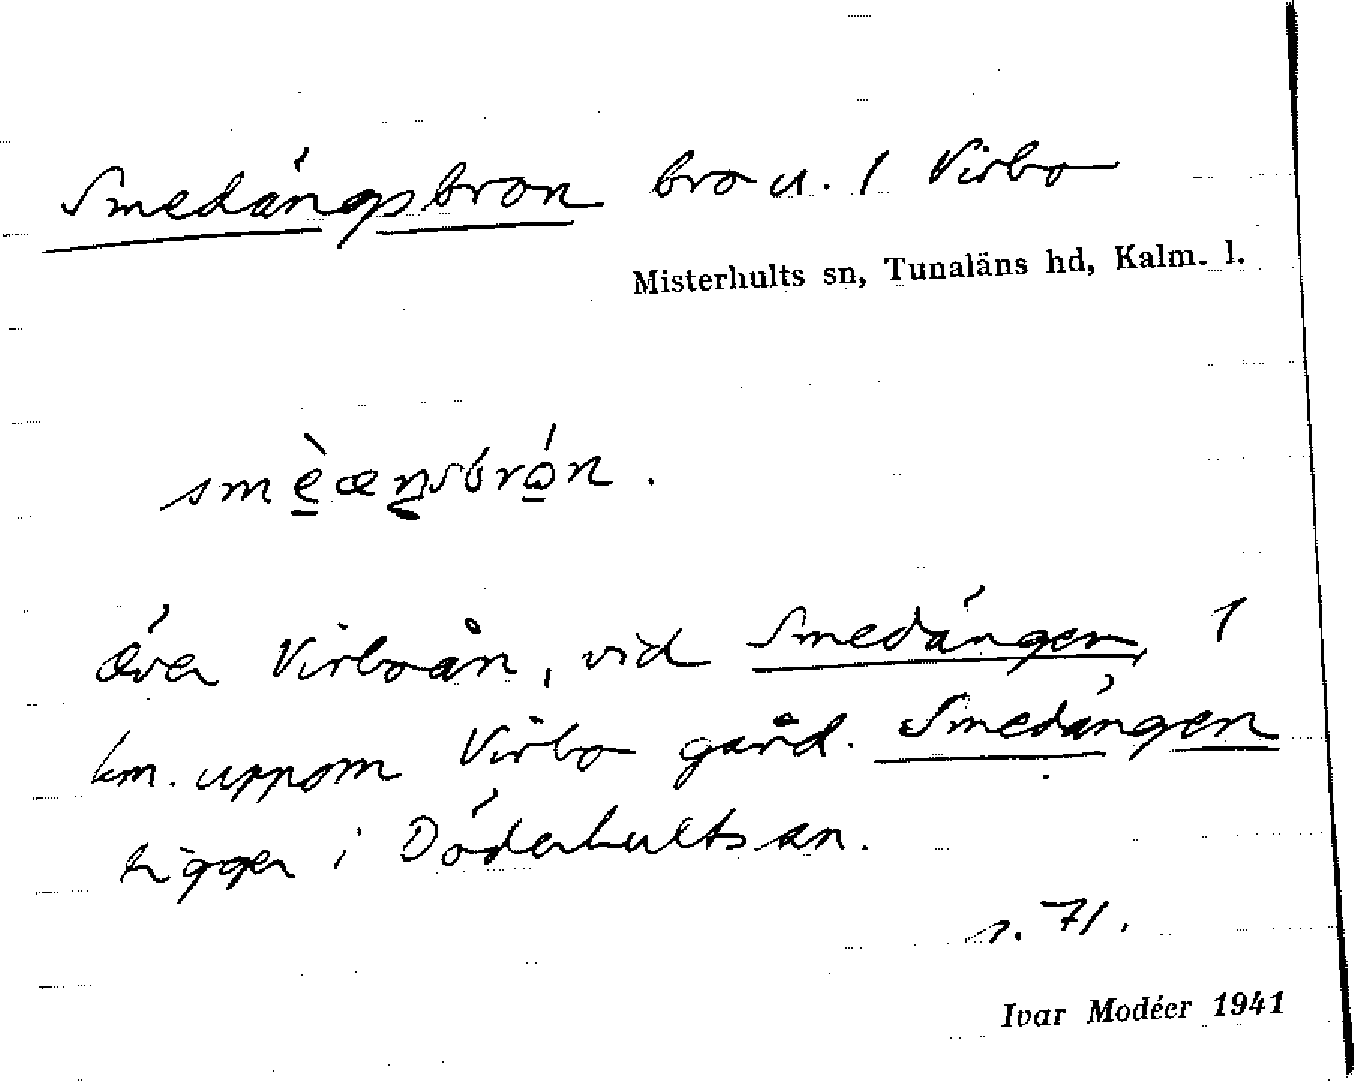 Smedängsbron bro u. 1 Virbo
Misterhults sn, Tunaläns hd, Kalm. l.
smèæŋsbrón.
över Virboån, vid Smedängen, 1
km. uppom Virbo gård. Smedängen
ligger i Döderhults sn.
s. 71.
Ivar Modéer 1941